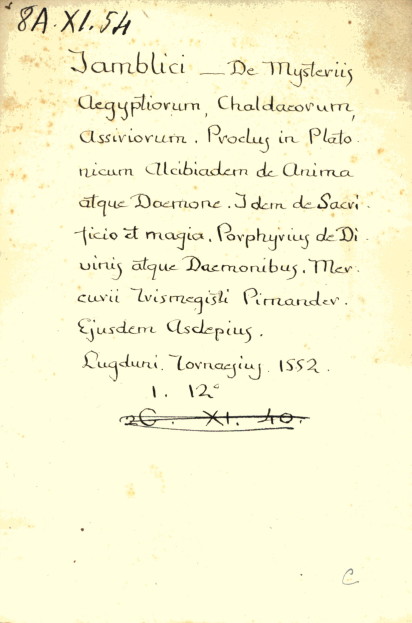 8A.XI.54
Jamblici — De Mysteriis
Aegyptiorum, Chaldaeorum,
Assiriorum. Proclus in Plato-
nicum Alcibiadem de Anima
atque Daemone. Idem de Sacri-
ficio et magia. Porphyrius de Di-
vinis atque Daemonibus. Mer-
curii Trismegisti Pimander.
Ejusdem Asclepius.
Lugduni. Tornaesius. 1552.
1. 12°
26. XI. 40.
C